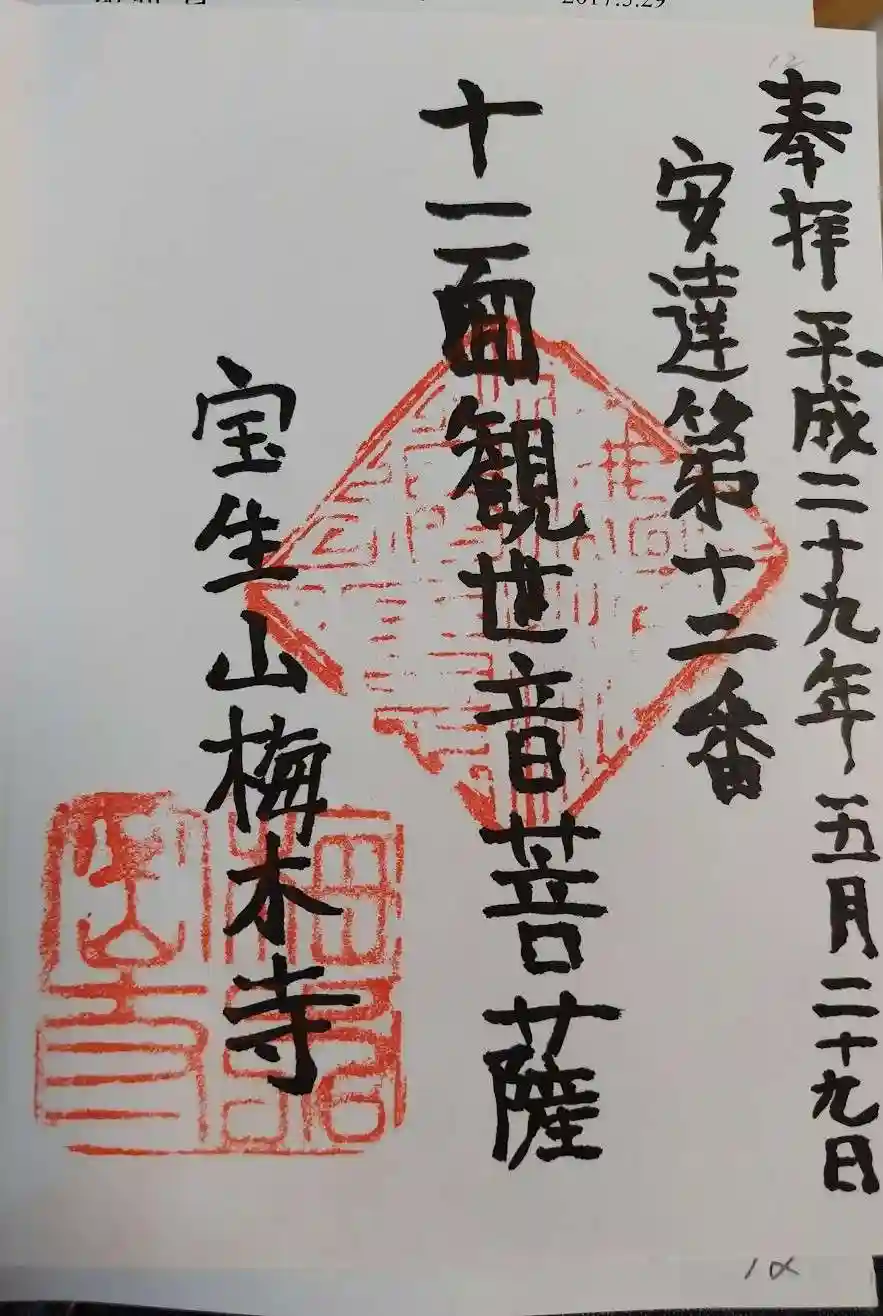 2017.5.29
12
奉拝 平成二十九年五月二十九日
安達第十二番
十一面観世音菩薩
宝生山梅木寺